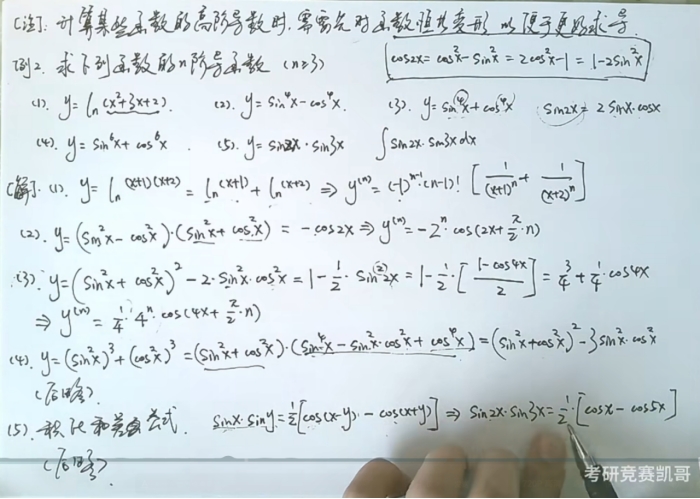 [注]: 计算某些函数的高阶导数时, 需要先对函数恒等变形 以便于更好求导
例2. 求下列函数的n阶导函数 (n≥3)
cos2x = cos²x - sin²x = 2cos²x - 1 = 1 - 2sin²x
(1). y = ln(x²+3x+2). (2). y = sin⁴x - cos⁴x. (3). y = sin⁴x + cos⁴x sin2x = 2 sinx·cosx
(4). y = sin⁶x + cos⁶x. (5). y = sin2x·sin3x ∫ sin2x·sin3x dx
[解]. (1). y = ln(x+1)(x+2) = ln(x+1) + ln(x+2) ⇒ y⁽ⁿ⁾ = (-1)ⁿ⁻¹·(n-1)! [1/(x+1)ⁿ + 1/(x+2)ⁿ]
(2). y = (sin²x - cos²x)·(sin²x + cos²x) = -cos2x ⇒ y⁽ⁿ⁾ = -2ⁿ·cos(2x + π/2·n)
(3). y = (sin²x + cos²x)² - 2·sin²x·cos²x = 1 - 1/2·sin²2x = 1 - 1/2·[(1-cos4x)/2] = 3/4 + 1/4·cos4x
⇒ y⁽ⁿ⁾ = 1/4·4ⁿ·cos(4x + π/2·n)
(4). y = (sin²x)³ + (cos²x)³ = (sin²x + cos²x)·(sin⁴x - sin²x·cos²x + cos⁴x) = (sin²x + cos²x)² - 3sin²x·cos²x
(后略).
(5). 积化和差公式. sinx·siny = 1/2[cos(x-y) - cos(x+y)] ⇒ sin2x·sin3x = 1/2·[cosx - cos5x]
(后略).
考研竞赛凯哥